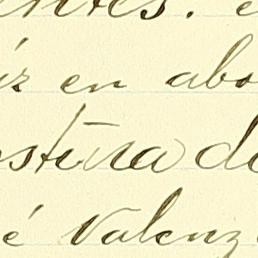 entes. e
iz en abo
ostura de
é Valenz